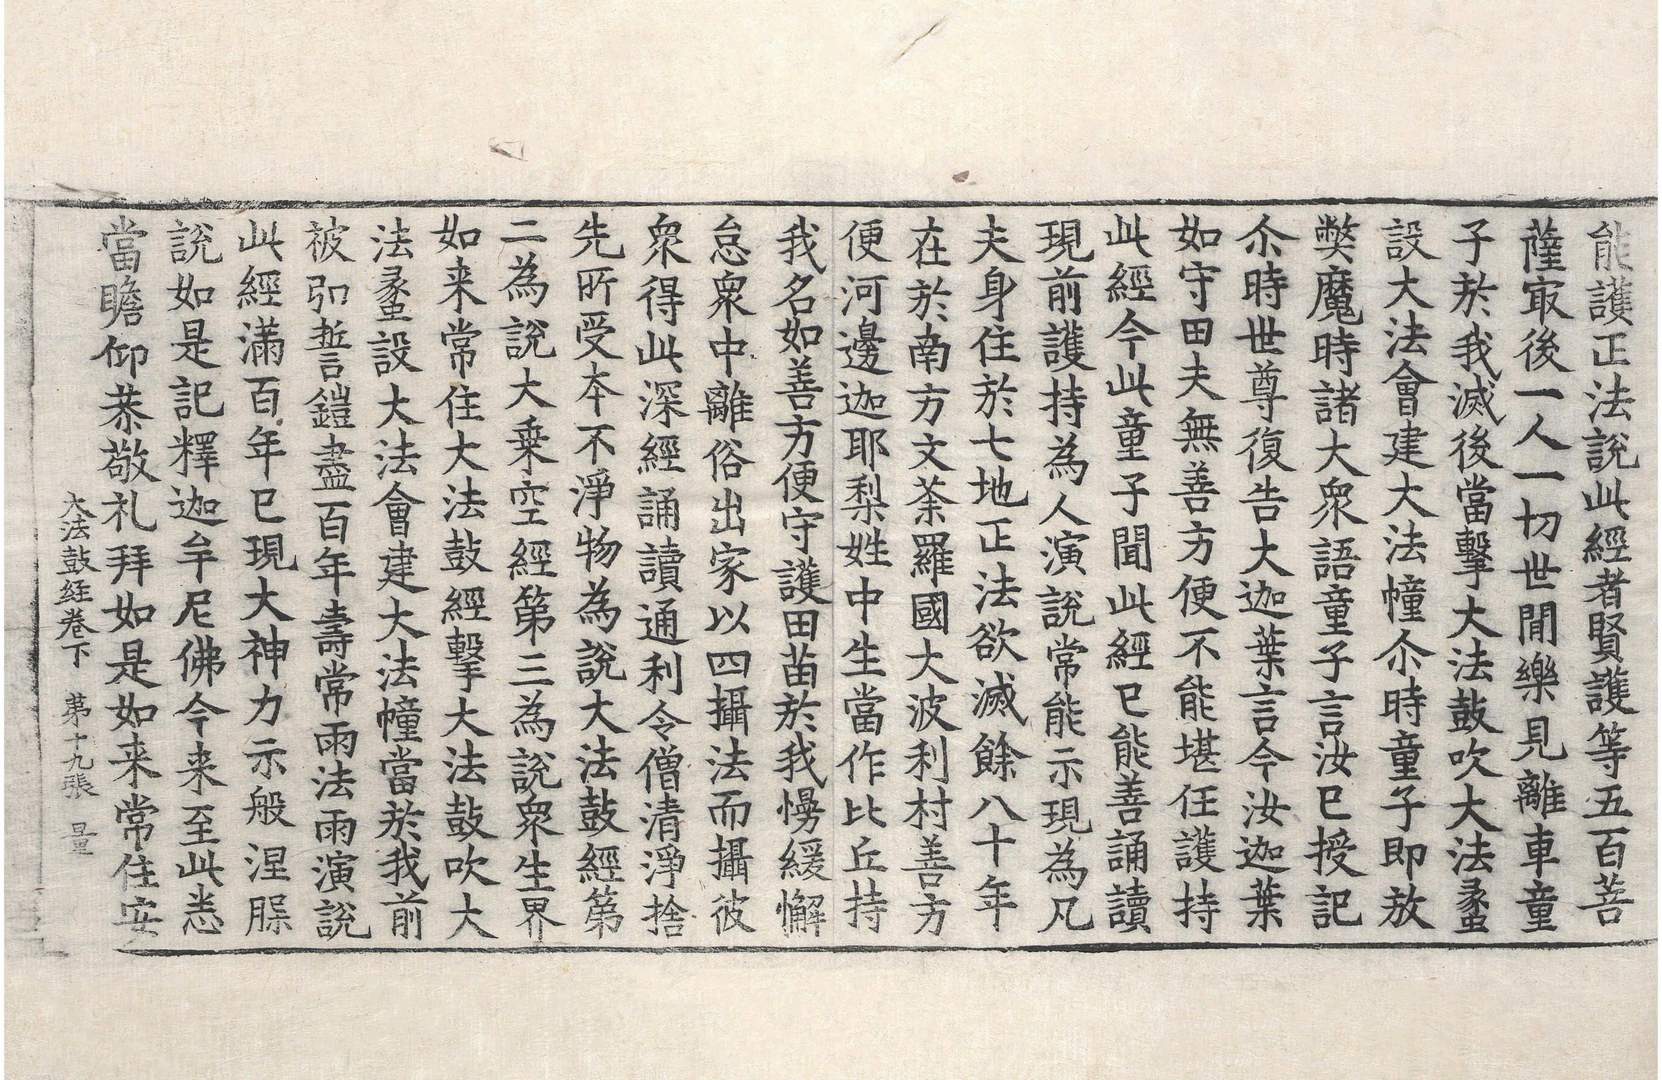 能護正法說此經者賢護等五百菩
薩㝡後一人一切世間樂見離車童
子於我滅後當擊大法鼓吹大法䗍
設大法會建大法幢尒時童子即放
獘魔時諸大衆語童子言汝已授記
尒時世尊復告大迦葉言今汝迦葉
如守田夫無善方便不能堪任護持
此經今此童子聞此經已能善誦讀
現前護持為人演說常能示現為凡
夫身住於七地正法欲滅餘八十年
在於南方文荼羅國大波利村善方
便河邊迦耶梨姓中生當作比丘持
我名如善方便守護田苗於我慢緩懈
怠衆中離俗出家以四攝法而攝彼
衆得此深經誦讀通利令僧清淨捨
先所受本不淨物為說大法鼓經第
二為說大乗空經第三為說衆生界
如来常住大法鼓經擊大法鼓吹大
法䗍設大法會建大法幢當於我前
被弘誓鎧盡百年壽常雨法雨演說
此經滿百年已現大神力示般涅槃
說如是記釋迦牟尼佛今来至此悉
當瞻仰恭敬礼拜如是如来常住安
大法鼓経卷下　第十九張　量